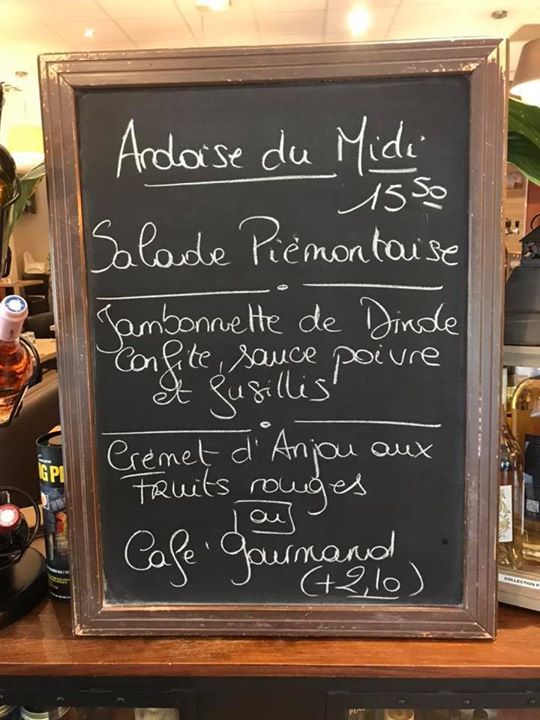 Ardoise du Midi
15 50
Salade Piémontaise
Jambonnette de Dinde
confite, sauce poivre
et fusillis
Crémet d'Anjou aux
Fruits rouges
ou
Café gourmand
(+2,10)
G PI
COLLECTION